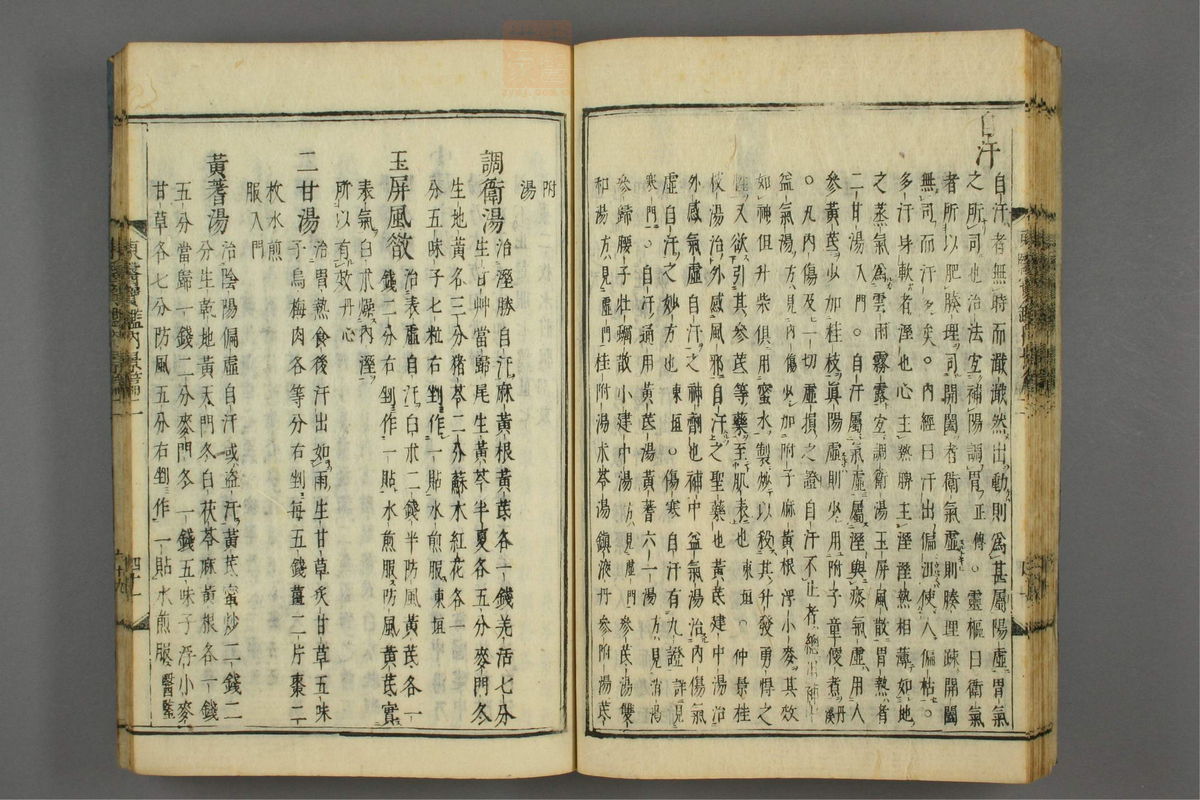 自汗
自汗者無時而濈濈然出動則爲甚屬陽虛胃氣
之所司也治法宜補陽調胃正傳○靈樞曰衛氣
者所以肥腠理司開闔者衛氣虛則腠理疎開闔
無司而汗多矣○內經曰汗出偏沮使人偏枯○
多汗身軟者溼也心主熱脾主溼溼熱相薄如地
之蒸氣爲雲雨霧露宜調衛湯玉屏風散胃熱者
二甘湯入門○自汗屬氣虛屬溼與痰氣虛用人
參黃芪少加桂枝眞陽虛則少用附子童便煮丹溪
○凡內傷及一切虛損之證自汗不止者總用補中
益氣湯方見內傷少加附子麻黃根浮小麥其效
如神但升柴俱用蜜水製炒以殺其升發勇悍之
性又欲引其參芪等藥至肌表也東垣○仲景桂
枝湯治外感風邪自汗之聖藥也黃芪建中湯治
外感氣虛自汗之神劑也補中益氣湯治內傷氣
虛自汗之妙方也東垣○傷寒自汗有九證詳見
寒門○自汗通用黃芪湯黃蓍六一湯方見消渴
參歸腰子牡蠣散小建中湯方見虛門參芪湯雙
和湯方見虛門桂附湯朮苓湯鎭液丹參附湯芪
附
湯
調衛湯 治溼勝自汗麻黃根黃芪各一錢羌活七分
生甘艸當歸尾生黃芩半夏各五分麥門冬
生地黃各三分猪苓二分蘇木紅花各一
分五味子七粒右剉作一貼水煎服東垣
玉屛風散 治表虛自汗白朮二錢半防風黃芪各一
錢二分右剉作一貼水煎服防風黃芪實
表氣白朮燥內溼
所以有效丹心
二甘湯 治胃熱食後汗出如雨生甘草炙甘草五味
子烏梅肉各等分右剉每五錢薑二片棗二
枚水煎
服入門
黃蓍湯 治陰陽偏虛自汗或盜汗黃芪蜜炒二錢二
分生乾地黃天門冬白茯苓麻黃根各一錢
五分當歸一錢二分麥門冬一錢五味子浮小麥
甘草各七分防風五分右剉作一貼水煎服醫鑒